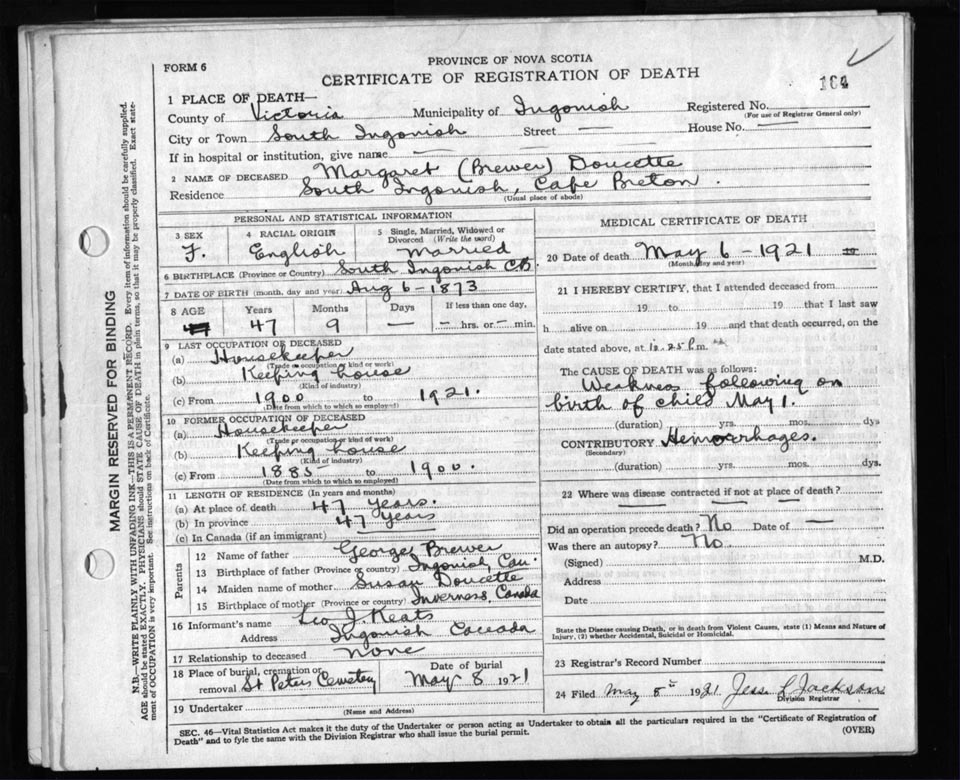 FORM 6
PROVINCE OF NOVA SCOTIA
CERTIFICATE OF REGISTRATION OF DEATH
164
1 PLACE OF DEATH—
County of Victoria Municipality of Ingonish Registered No.
(For use of Registrar General only)
City or Town South Ingonish Street — House No. —
If in hospital or institution, give name —
2 NAME OF DECEASED Margaret (Brewer) Doucette
Residence South Ingonish, Cape Breton.
(Usual place of abode)
PERSONAL AND STATISTICAL INFORMATION
3 SEX F.
4 RACIAL ORIGIN English
5 Single, Married, Widowed or Divorced (Write the word) Married
6 BIRTHPLACE (Province or Country) South Ingonish C.B.
7 DATE OF BIRTH (month, day and year) Aug 6 - 1873
8 AGE Years Months Days If less than one day,
47 9 — — hrs. or — min.
9 LAST OCCUPATION OF DECEASED
(a) Housekeeper
(Trade or occupation or kind of work)
(b) Keeping house
(Kind of industry)
(c) From 1900 to 1921.
(Date from which to which so employed)
10 FORMER OCCUPATION OF DECEASED
(a) Housekeeper
(Trade or occupation or kind of work)
(b) Keeping house
(Kind of industry)
(c) From 1885 to 1900.
(Date from which to which so employed)
11 LENGTH OF RESIDENCE (In years and months)
(a) At place of death 47 years.
(b) In province 47 years
(c) In Canada (if an immigrant)
Parents
12 Name of father George Brewer
13 Birthplace of father (Province or country) Ingonish, Can.
14 Maiden name of mother Susan Doucette
15 Birthplace of mother (Province or Country) Inverness, Canada
16 Informant's name Leo J. Keats
Address Ingonish
17 Relationship to deceased None
18 Place of burial, cremation or removal St Peters Cemetery
Date of burial May 8 1921
19 Undertaker
(Name and Address)
MEDICAL CERTIFICATE OF DEATH
20 Date of death May 6 - 1921
(Month, day and year)
21 I HEREBY CERTIFY, that I attended deceased from
19 to 19 that I last saw
h alive on 19 and that death occurred, on the
date stated above, at 12.25 P.m.
The CAUSE OF DEATH was as follows:
Weakness following on
birth of child May 1.
(duration) yrs. mos. dys
CONTRIBUTORY Hemorrhages.
(Secondary)
(duration) yrs. mos. dys.
22 Where was disease contracted if not at place of death?
Did an operation precede death? No Date of —
Was there an autopsy? No
(Signed) M.D.
Address
Date
State the Disease causing Death, or in death from Violent Causes, state (1) Means and Nature of
Injury, (2) whether Accidental, Suicidal or Homicidal.
23 Registrar's Record Number
24 Filed May 8th 1921 Jackson
Division Registrar
SEC. 46—Vital Statistics Act makes it the duty of the Undertaker or person acting as Undertaker to obtain all the particulars required in the "Certificate of Registration of
Death" and to fyle the same with the Division Registrar who shall issue the burial permit.
(OVER)
MARGIN RESERVED FOR BINDING
N.B.—WRITE PLAINLY WITH UNFADING INK—THIS IS A PERMANENT RECORD. Every item of information should be carefully supplied.
AGE should be stated EXACTLY. PHYSICIANS should STATE CAUSE OF DEATH in plain terms, so that it may be properly classified. Exact state-
ment of OCCUPATION is very important. See instructions on back of Certificate.